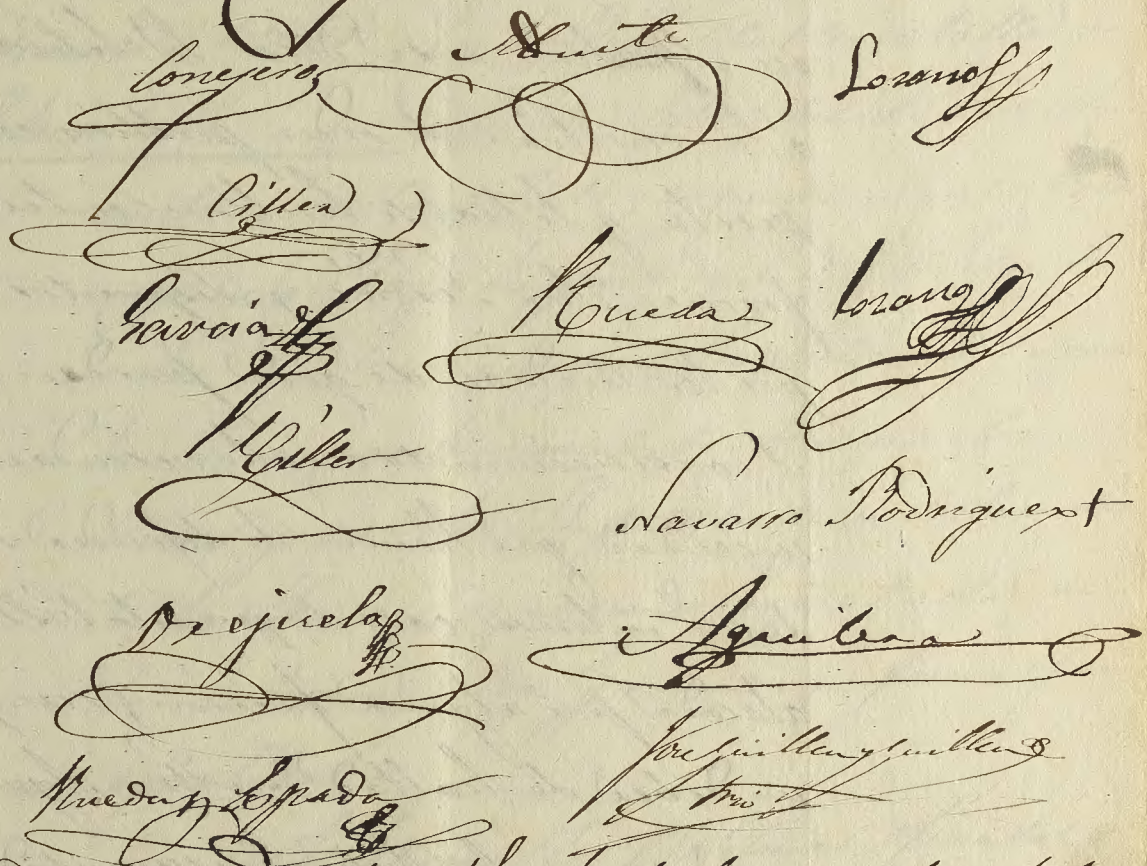 Conejero
Lozano
Ciller
Garcia
Rueda
Lozano
Ciller
Navarro Rodriguez
Aguilera
Jose Guillen y Guillen
Srio
Rueda y